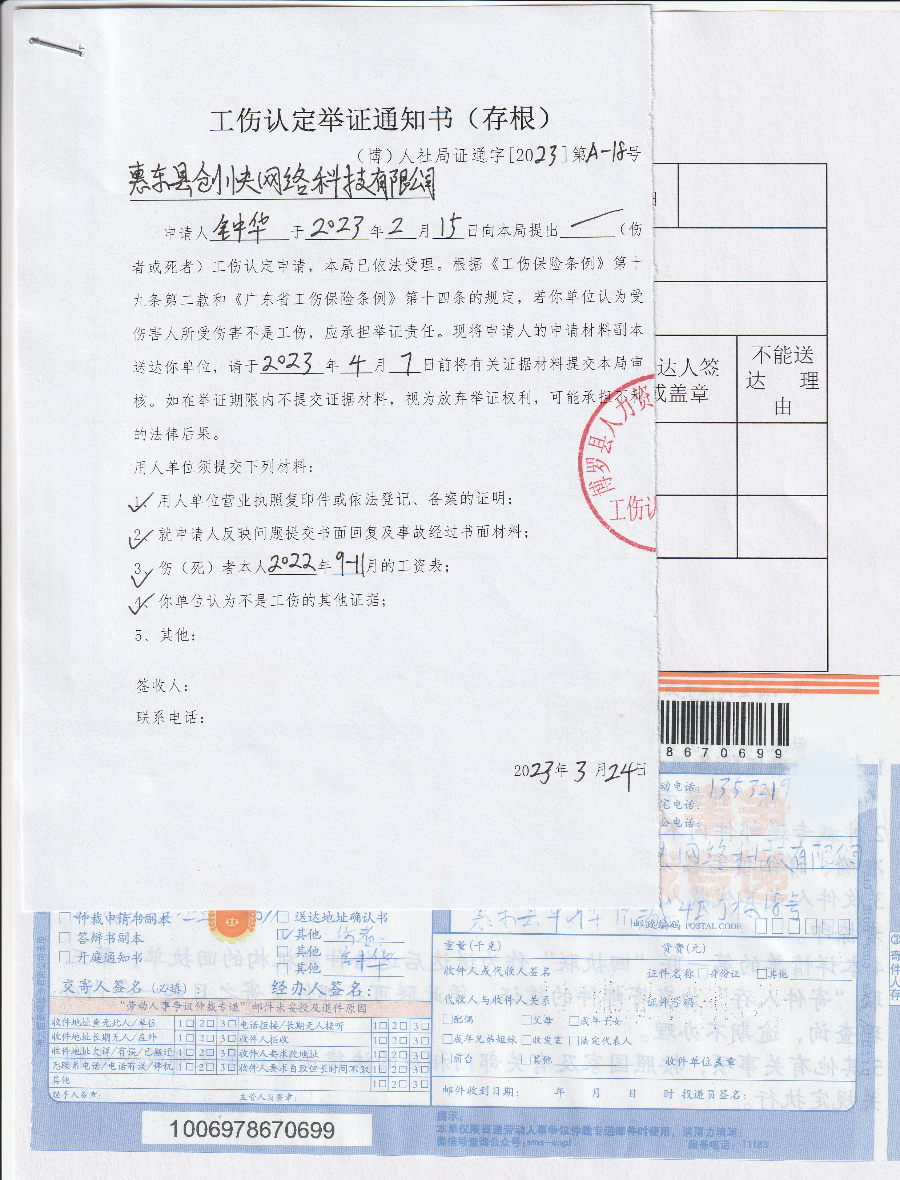 工伤认定举证通知书（存根）
（博）人社局证通字[2023]第A-18号
惠东县创小央网络科技有限公司
申请人 于2023年2月15日向本局提出 （伤
者或死者）工伤认定申请，本局已依法受理。根据《工伤保险条例》第十
九条第二款和《广东省工伤保险条例》第十四条的规定，若你单位认为受
伤害人所受伤害不是工伤，应承担举证责任。现将申请人的申请材料副本
送达你单位，请于2023年4月7日前将有关证据材料提交本局审
核。如在举证期限内不提交证据材料，视为放弃举证权利，可能承担不利
的法律后果。
用人单位须提交下列材料：
1、用人单位营业执照复印件或依法登记、备案的证明；
2、就申请人反映问题提交书面回复及事故经过书面材料；
3、伤（死）者本人2022年9-11月的工资表；
4、你单位认为不是工伤的其他证据；
5、其他：
签收人：
联系电话：
2023年3月24日
博罗县人力资
工伤认
达人签
或盖章
不能送
达 理
由
8670699
动电话：
宅电话：
公电话：
网络科技有限公司
18号
邮政编码 POSTAL CODE
仲裁申请书副本
送达地址确认书
答辩书副本
其他
开庭通知书
其他
其他
交寄人签名（必填） 经办人签名：
"劳动人事争议仲裁专递"邮件未妥投及退件原因
收件地址查无此人/单位 1 2 3 电话拒接/长期无人接听 1 2 3
收件地址长期无人/在外 1 2 3 收件人拒收 1 2 3
收件地址欠详/有误/已搬迁 1 2 3 收件人要求改地址 1 2 3
无联系电话/电话有误/停机 1 2 3 收件人要求自取但长时间不取 1 2 3
其他 1 2 3
投递人签章： 主管人员签章：
重量(千克) 资费(元)
收件人或代收人签名 证件名称 身份证 其他
代收人与收件人关系 证件号码
配偶 父母 成年子女
成年兄弟姐妹 收发室 法定代表人
前台 其他 收件单位盖章
邮件收到日期： 年 月 日 时 投递员签名：
1006978670699
提示：
本单仅限寄递劳动人事争议仲裁专递邮件时使用，请用力填写
微信号查询公众号:ems-cnpl 服务电话：11183
③寄件人存